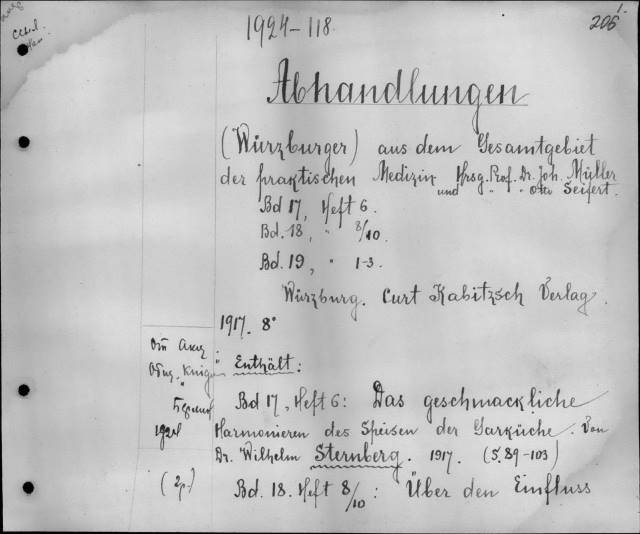 1924-118
1.
206
Abhandlungen
(Würzburger) aus dem Gesamtgebiet
der praktischen Medizin Hrsg. Prof. Dr. Joh. Müller
und " " Otto Seifert.
Bd 17, Heft 6.
Bd. 18, " 8/10.
Bd. 19, " 1-3.
Würzburg. Curt Kabitzsch Verlag.
1917. 8°
От Акц.
Общ. "Книга"
Берлин
1924
(2р.)
Enthält:
Bd 17, Heft 6: Das geschmackliche
Harmonieren des Speisen der Garküche. Von
Dr. Wilhelm Sternberg. 1917. (S. 89-103)
Bd. 18. Heft 8/10: Über den Einfluss